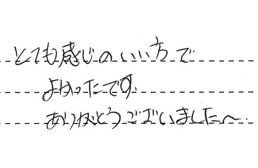 とても感じのいい方で
よかったです
ありがとうございました〜